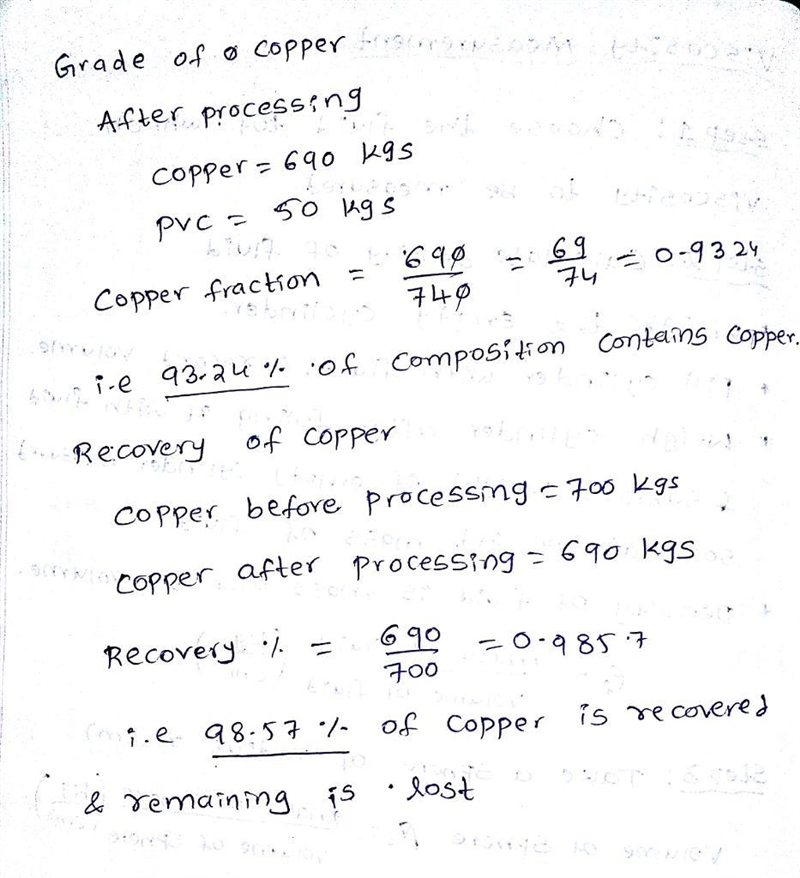 Grade of copper
After processing
copper = 690 kgs
pvc = 50 kgs
Copper fraction = 690/740 = 69/74 = 0.9324
i.e 93.24 % of composition contains copper.
Recovery of copper
copper before processing = 700 kgs
copper after processing = 690 kgs
Recovery % = 690/700 = 0.9857
i.e 98.57 % of copper is recovered
& remaining is lost